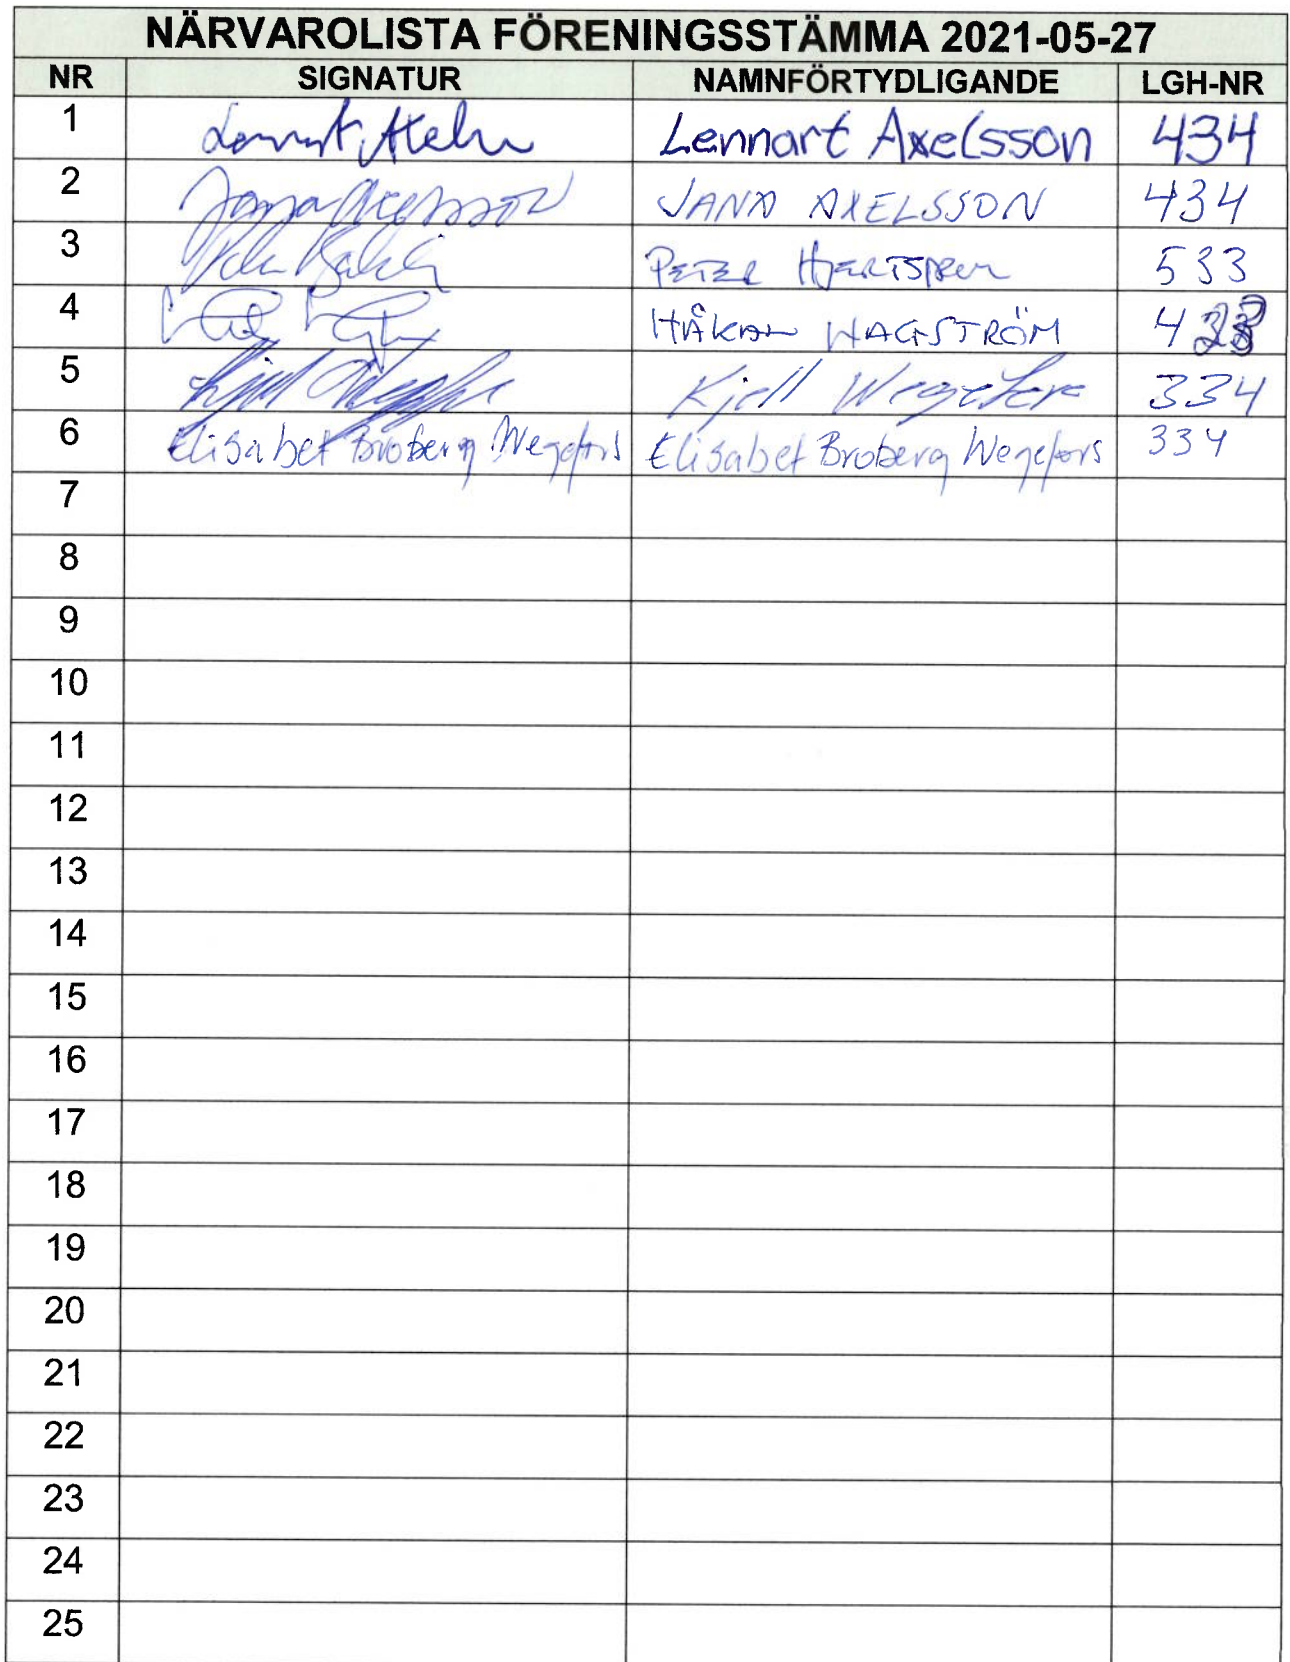 NÄRVAROLISTA FÖRENINGSSTÄMMA 2021-05-27
NR SIGNATUR NAMNFÖRTYDLIGANDE LGH-NR
1 Lennart Axelsson 434
2 Jana Axelsson JANA AXELSSON 434
3 PETER 533
4 HÅKAN HAGSTRÖM
5 Kjell Wegefors 334
6 Elisabet Broberg Wegefors Elisabet Broberg Wegefors 334
7
8
9
10
11
12
13
14
15
16
17
18
19
20
21
22
23
24
25